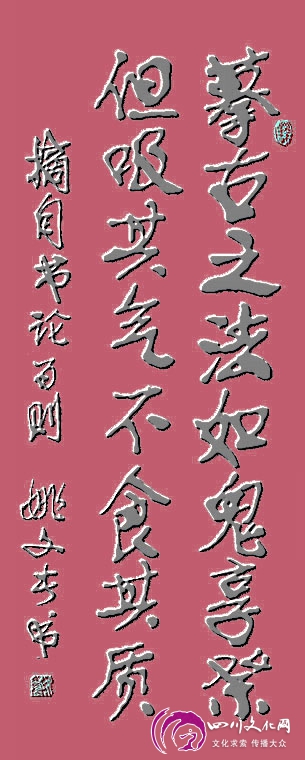 摹古之法如鬼享祭
但吸其气不食其质
摘自书论百则 姚文书
四川文化网
文化求索 传播大众